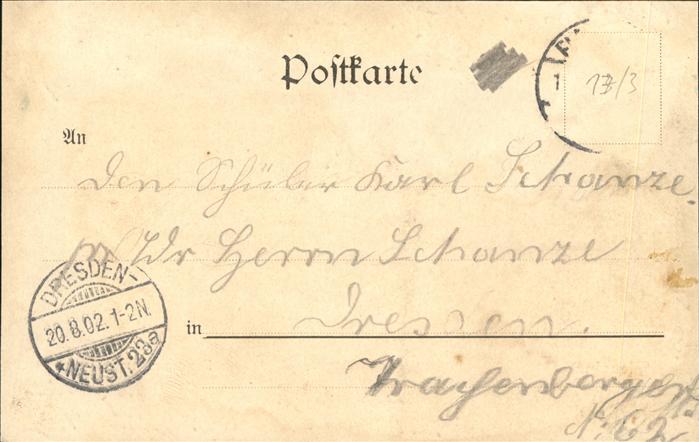 Postkarte
17/3
An
den Schüler Karl Schanze.
Adr Herrn Schanze
DRESDEN-
20.8.02.1-2N.
*NEUST.23a
in Dresden.
Trachenberger
No 62